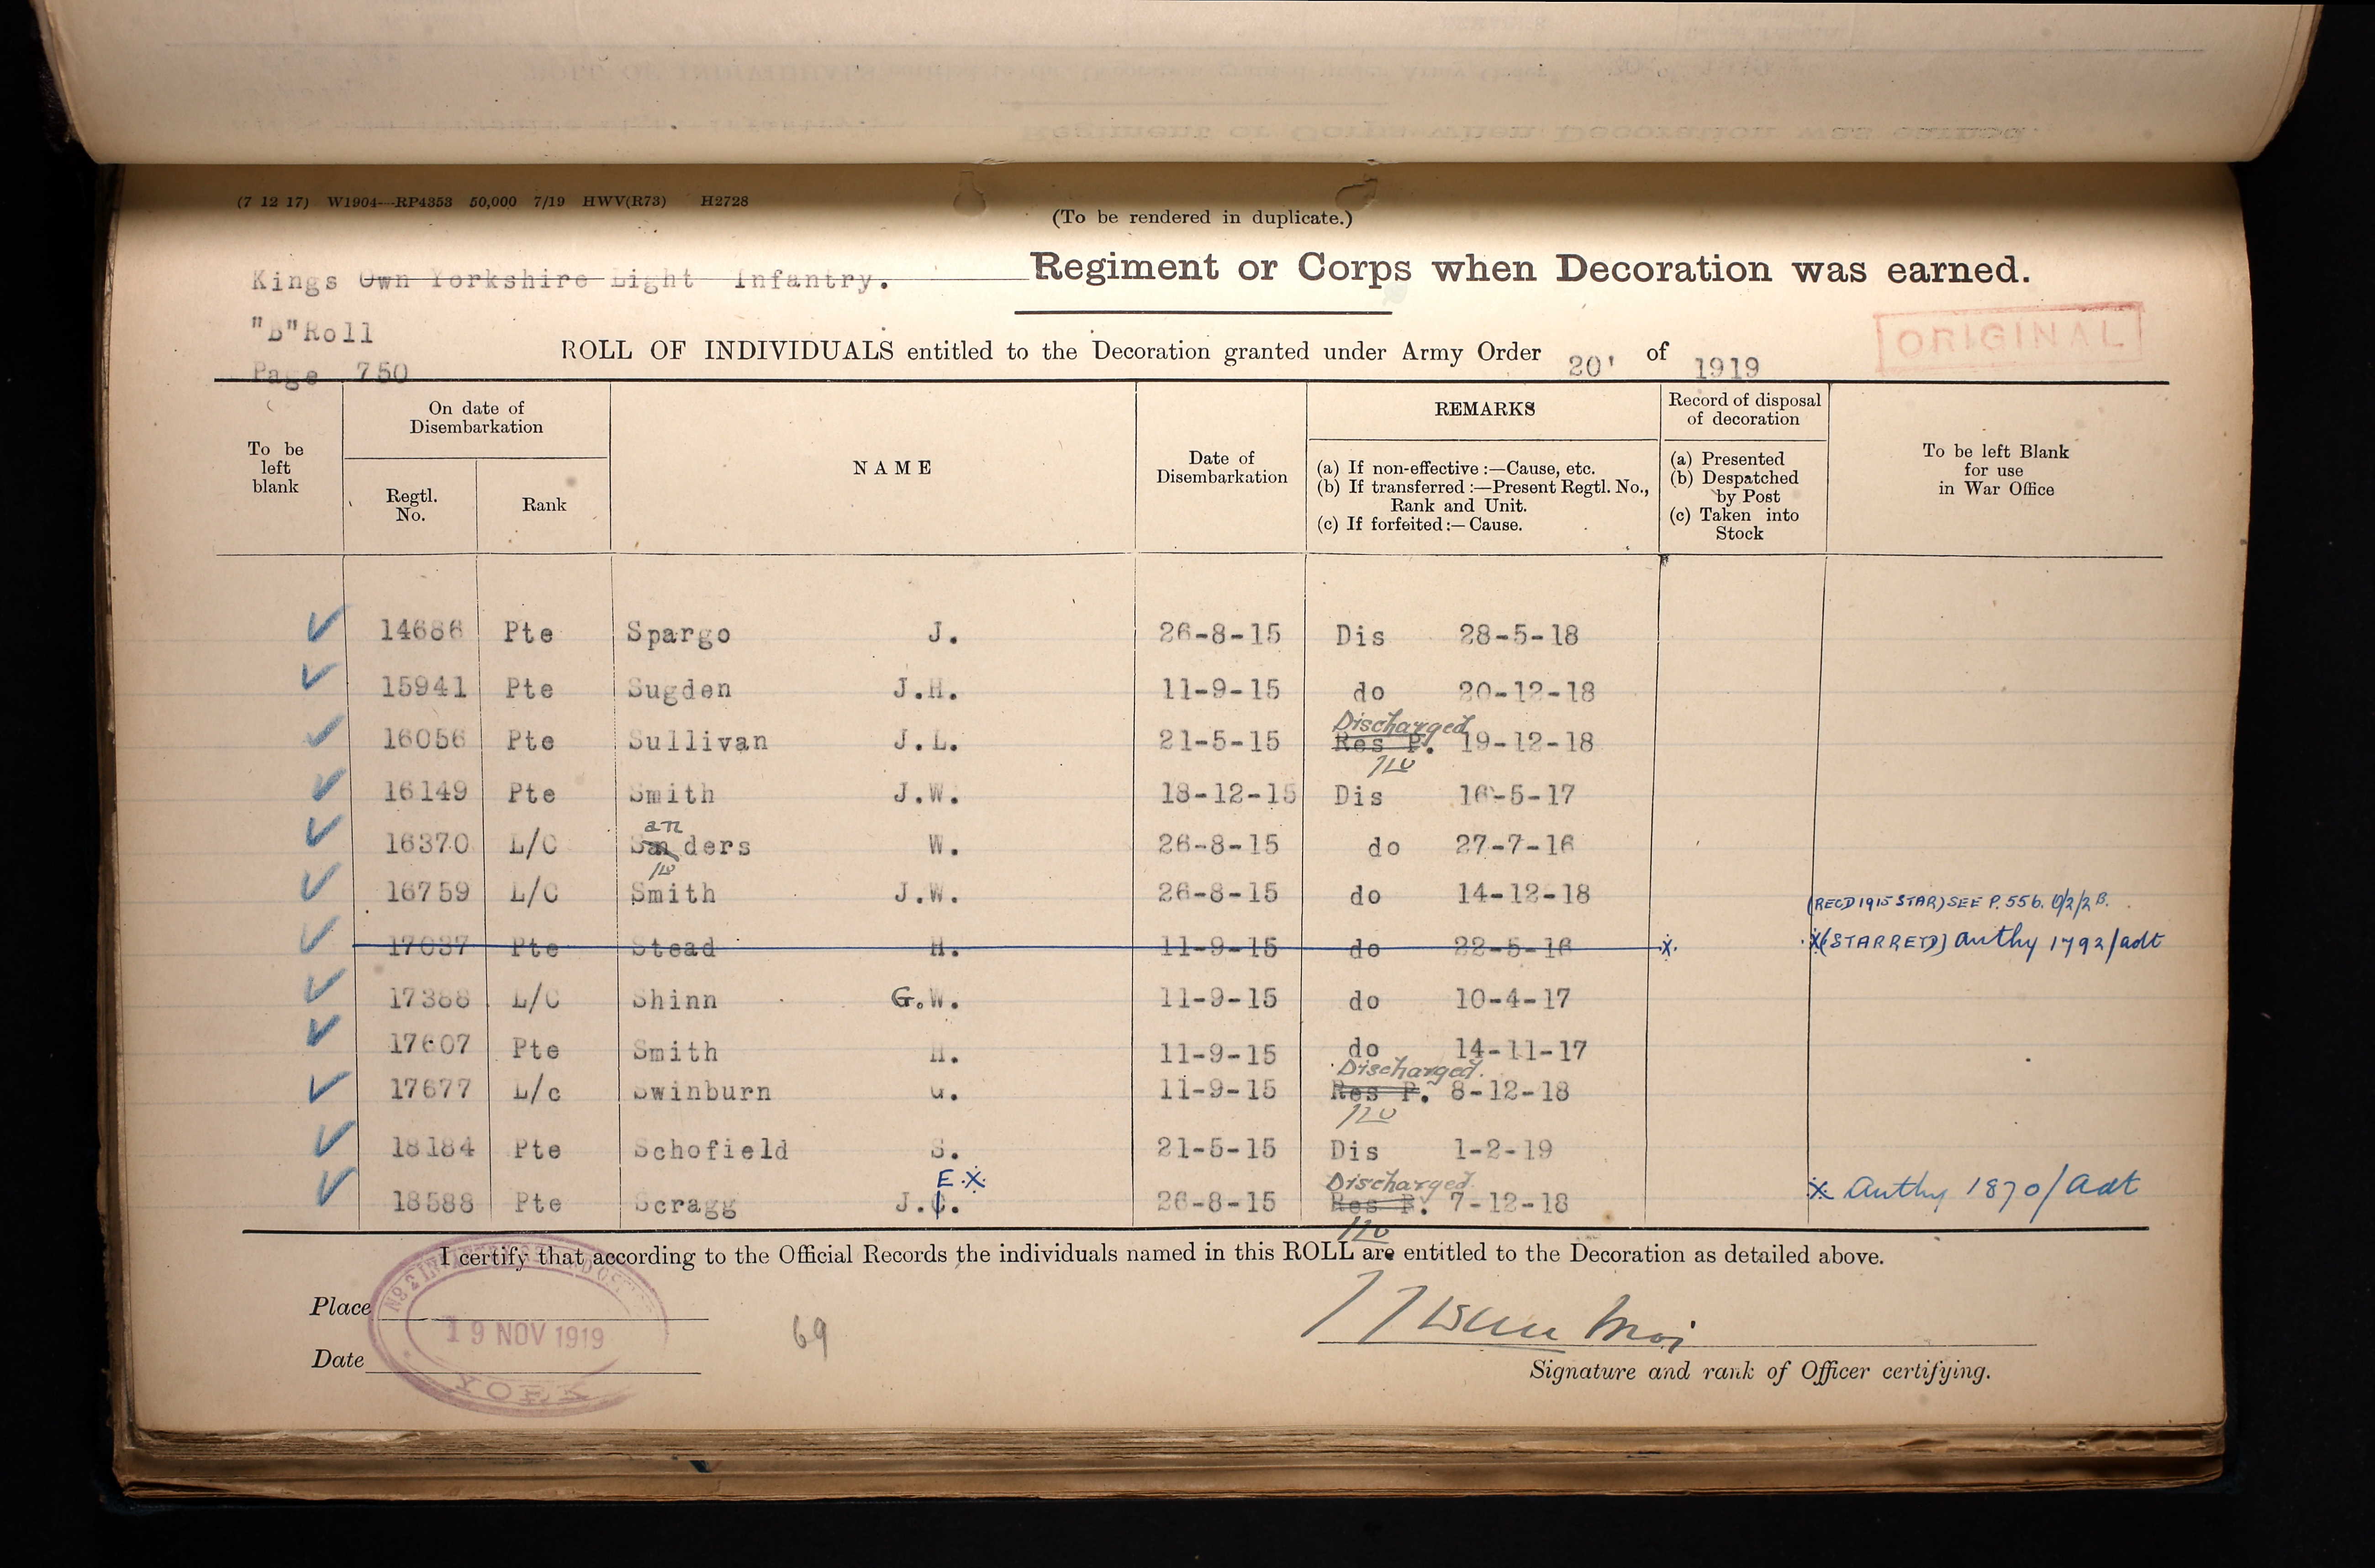 (7 12 17) W1904—RP4353 50,000 7/19 HWV(R73) H2728
(To be rendered in duplicate.)
Kings Own Yorkshire Light Infantry. Regiment or Corps when Decoration was earned.
"B"Roll
ORIGINAL
ROLL OF INDIVIDUALS entitled to the Decoration granted under Army Order 20' of 1919
Page 750
To be left blank
On date of Disembarkation
Regtl. No.
Rank
NAME
Date of Disembarkation
REMARKS
(a) If non-effective :—Cause, etc.
(b) If transferred :—Present Regtl. No., Rank and Unit.
(c) If forfeited :—Cause.
Record of disposal of decoration
(a) Presented
(b) Despatched by Post
(c) Taken into Stock
To be left Blank for use in War Office
14686 Pte Spargo J. 26-8-15 Dis 28-5-18
15941 Pte Sugden J.H. 11-9-15 do 20-12-18
Discharged
16056 Pte Sullivan J.L. 21-5-15 Res P. 19-12-18
16149 Pte Smith J.W. 18-12-15 Dis 16-5-17
an
16370 L/C Sanders W. 26-8-15 do 27-7-16
16759 L/C Smith J.W. 26-8-15 do 14-12-18
(RECD 1915 STAR) SEE P. 556.
17037 Pte Stead H. 11-9-15 do 22-5-16 X. X (STAR RETD) Authy 1792/adt
17388 L/C Shinn G.W. 11-9-15 do 10-4-17
17607 Pte Smith H. 11-9-15 do 14-11-17
Discharged.
17677 L/c Swinburn G. 11-9-15 Res P. 8-12-18
18184 Pte Schofield S. 21-5-15 Dis 1-2-19
E.X. Discharged
18588 Pte Scragg J.C. 26-8-15 Res P. 7-12-18 X Authy 1870/Adt
I certify that according to the Official Records the individuals named in this ROLL are entitled to the Decoration as detailed above.
Place
19 NOV 1919
69
Date
YORK
Signature and rank of Officer certifying.